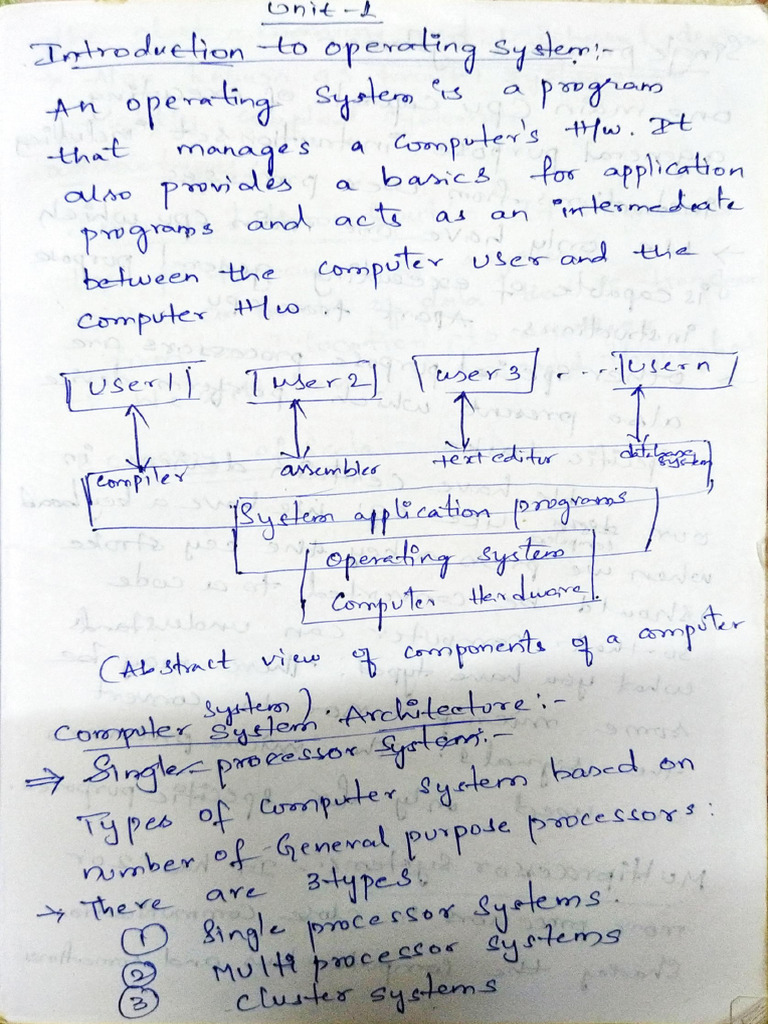 Unit-1
Introduction to operating System:-
An operating System is a program
that manages a Computer's H/w. It
also provides a basics for application
programs and acts as an intermediate
between the computer user and the
computer H/w
User1 user2 user3 .... Usern
compiler assembler text editor database system
System application programs
operating system
Computer Hardware
(Abstract view of components of a computer
system).
Computer System Architecture:-
⇒ Single-processor System:-
Types of Computer System based on
number of General purpose processors:
→ There are 3types.
① Single processor systems.
② Multi processor systems
③ cluster systems